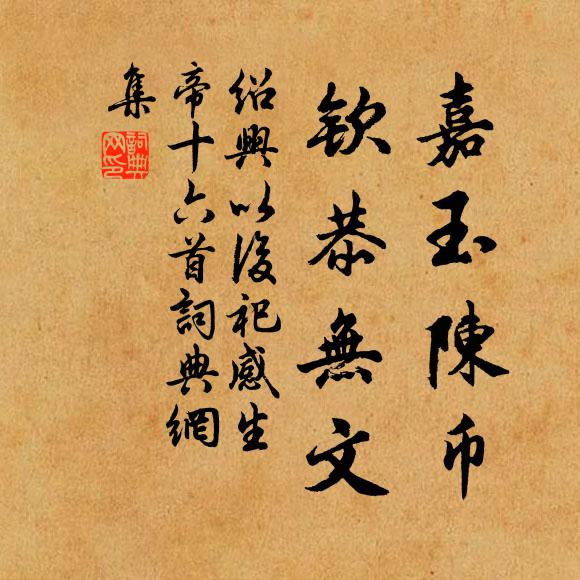 嘉玉陳币
欽恭無文
紹興以後祀感生
帝十六首詞典網
集
詞典網印